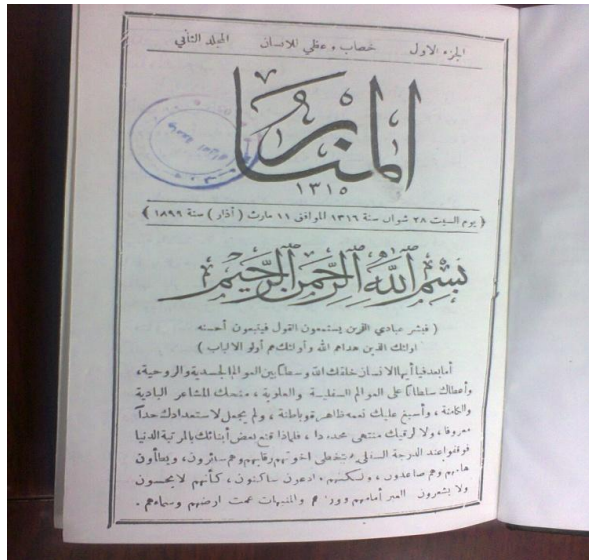 الجزء الاول خصاب . عقلي للانسان المجلد الثاني
المنار
١٣١٥
﴿ يوم السبت ٢٨ شوال سنة ١٣١٦ الموافق ١١ مارث ( آذار ) سنة ١٨٩٩ ﴾
بسم الله الرحمن الرحيم
( فبشر عبادي الذين يستمعون القول فيتبعون أحسنه
اولئك الذين هداهم الله وأولئك هم أولو الالباب )
أما بعد فيا أيها الانسان خلقك الله وسطاً بين العوالم الجسدية والروحية،
وأعطاك سلطاناً على العوالم السفلية والعلوية ، منحك المشاعر البادية
والكامنة ، وأسبغ عليك نعمه ظاهرة وباطنة ، ولم يجعل لاستعدادك حداً
معروفا ، ولا لرقيك منتهى محدودا ، فلماذا قنع بعض أبنائك بالمرتبة الدنيا
فوقفوا عند الدرجة السفلى يتخطى اخوتهم رقابهم وهم سائرون، ويطأون
هامهم وهم صاعدون ، ولكنهم وادعون ساكنون ، كأنهم لايحسون
ولا يشعرون العبر أمامهم وورائهم والمنبهات عمت ارضهم وسماءهم .